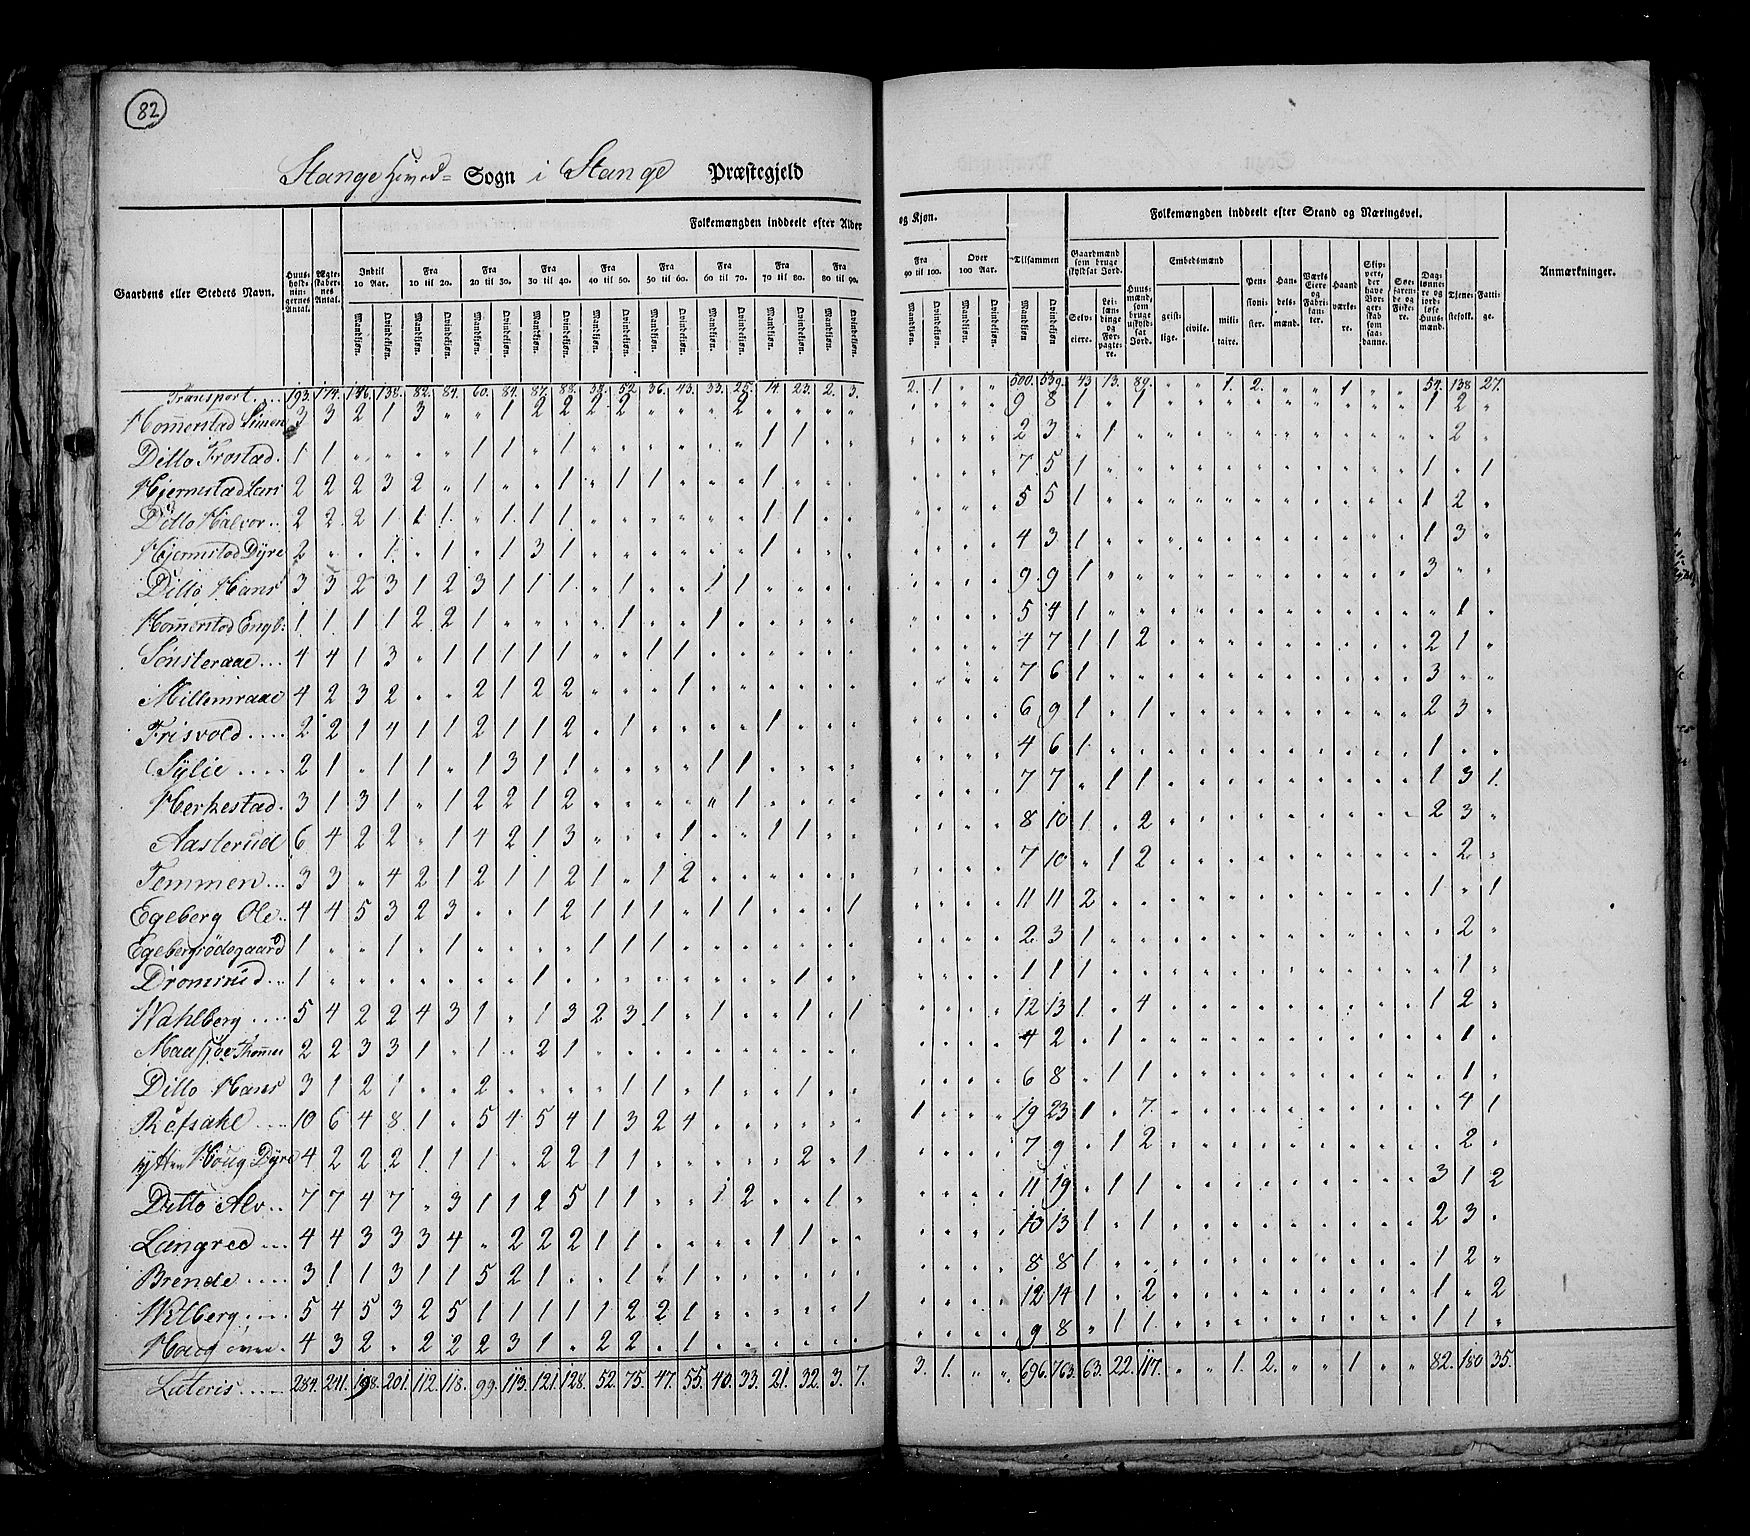 82
Stange Hoved= Sogn i Stange Præstegjeld
Gaardens eller Stedets Navn.
Huusholdningernes Antal.
Ægteskabernes Antal.
Folkemængden inddeelt efter Alder og Kjøn.
Indtil 10 Aar.
Fra 10 til 20.
Fra 20 til 30.
Fra 30 til 40.
Fra 40 til 50.
Fra 50 til 60.
Fra 60 til 70.
Fra 70 til 80.
Fra 80 til 90.
Fra 90 til 100.
Over 100 Aar.
Tilsammen
Mandkjøn. Qvindekjøn.
Folkemængden inddeelt efter Stand og Næringsvei.
Gaardmænd som bruge skyldsat Jord.
Selveiere.
Leilændinge og Forpagtere.
Huusmænd, som bruge uskyldsat Jord.
Embedsmænd
geistlige. civile. militaire.
Pensionister.
Handelsmænd.
Værks Eiere og Fabrikanter.
Haandværkere.
Skippere, der have Borgerskab som saadanne.
Søefarende og Fiskere.
Daglønnere og jordløse Huusmænd.
Tjenestefolk.
Fattige.
Anmærkninger.
Transport 193. 174. 146. 138. 82. 84. 60. 84. 87. 88. 38. 52. 36. 43. 33. 25. 14. 23. 2. 3. 2. 1 " " 500. 539. 43 13. 89. " " 1. 2. " " 1 " " 54. 138 27.
Homerstad Simen 3 3 2 1 3 " " 1 2 2 2 2 " " " 2 " " " " " " " " 9 8 1 " 1 " " " " " " " " " 1 2 "
Ditto Frostad 1 1 " " " " 1 1 " 1 " " " " " " 1 1 " " " " " " 2 3 " 1 " " " " " " " " " " " 2 "
Hjermstad Lars 2 2 2 3 2 " 1 " " 1 " 1 1 " " " 1 " " " " " " " 7 5 1 " " " " " " " " " " " 1 " 1
Ditto Halvor 2 2 2 1 1 1 " 1 1 1 " " " " " " 1 1 " " " " " " 5 5 1 " " " " " " " " " " " 1 2 "
Hjermstad Dÿre 2 " " 1 " 1 " 1 3 1 " " " " " " 1 " " " " " " " 4 3 1 " " " " " " " " " " " 1 3 "
Ditto Hans 3 3 2 3 1 2 3 1 1 1 " 1 " " 1 1 " " " " " " " " 9 9 1 " " " " " " " " " " " 3 " "
Homerstad Engb: 1 1 1 1 2 2 1 " " " " 1 " " 1 " " " " " " " " " 5 4 1 " " " " " " " " " " " " 1 "
Sønsteraae 4 4 1 3 " 1 1 1 1 1 " " 1 1 " " " " " " " " " " 4 7 1 1 2 " " " " " " " " " 2 1 "
Millemraae 4 2 3 2 " " 2 1 2 2 " " " 1 " " " " " " " " " " 7 6 1 " " " " " " " " " " " 3 " "
Frisvold 2 2 1 4 1 1 2 1 1 2 " 1 " " " " 1 " " " " " " " 6 9 1 " 1 " " " " " " " " " 2 3 "
Sÿlie 2 1 " 1 1 " 1 3 1 1 " " " " 1 1 " " " " " " " " 4 6 1 " " " " " " " " " " " 1 " "
Herkestad 3 1 3 1 " 1 2 2 1 2 " " " " " 1 " " " " " " " " 7 7 " 1 1 " " " " " " " " " 1 3 1
Aasterud 6 4 2 2 " 1 4 2 1 3 " " " 1 " " 1 1 " " " " " " 8 10 1 " 2 " " " " " " " " " 2 3 "
Temmen 3 3 " 4 2 1 2 1 1 2 1 " 1 2 " " " " " " " " " " 7 10 " 1 2 " " " " " " " " " " 2 "
Egeberg Ole 4 4 5 3 2 3 " " 1 2 1 1 1 " 1 1 " " " 1 " " " " 11 11 2 " " " " " " " " " " " 1 " 1
Egebergsødegaard 1 " " 1 " 1 " " " " 1 1 1 " " " " " " " " " " " 2 3 1 " " " " " " " " " " " " 2 "
Dromsrud 1 " " " " " " " 1 " " " " " " " " 1 " " " " " " 1 1 1 " " " " " " " " " " " " 1 "
Wahlberg 5 4 2 2 4 3 1 " 1 3 2 3 1 " 1 " " 1 " 1 " " " " 12 13 1 " 4 " " " " " " " " " 1 2 "
Maasjoe Thommes 2 2 3 3 1 " 1 " 2 1 " " " " " " " " " " " " " " 4 2 " 1 " " " " " " " " " " " 1 "
Ditto Hans 3 1 2 1 " " 2 " " " " 1 1 " 1 " " 1 " " " " " " 6 8 " 1 1 " " " " " " " " " " 1 "
Refsahl 10 6 4 8 1 " 5 4 5 4 1 3 2 4 " " " " " " 1 " " " 19 23 1 " 7 " " " " " " " " " " 4 1
Houg Dÿre 4 2 2 2 1 1 1 " 2 2 1 1 " " " " " 2 " 1 " " " " 7 9 " 1 2 " " " " " " " " " " 2 "
Ditto Alv 7 7 4 7 " 3 1 1 2 5 1 1 " " 1 2 " " 1 " " " " " 11 19 " 1 1 " " " " " " " " " 3 1 2
Langree 4 4 3 3 3 4 " 2 2 2 1 1 " " " " 1 1 " " " " " " 13 13 1 " 1 " " " " " " " " " 2 3 "
Brende 3 1 1 3 1 1 5 2 1 " " 1 " 1 " " " " " " " " " " 8 8 1 " " " " " " " " " " " 1 2 "
Wilberg 5 4 5 3 2 5 1 1 1 1 1 2 2 1 " " " " " 1 " " " " 12 14 1 " 2 " " " " " " " " " 1 " 2
Houg øvre 4 3 2 " 2 2 2 3 1 " 2 2 " 1 " " " " " " " " " " 9 8 " 1 1 " " " " " " " " " 1 1 "
Lateris 284. 241. 198. 201. 112. 118. 99. 113. 121. 128. 52. 75. 47. 55. 40. 33. 21. 32. 3. 7. 3. 1. " " 696. 763. 63. 22. 117. " " 1. 2. " " 1 " " 82. 180 35.